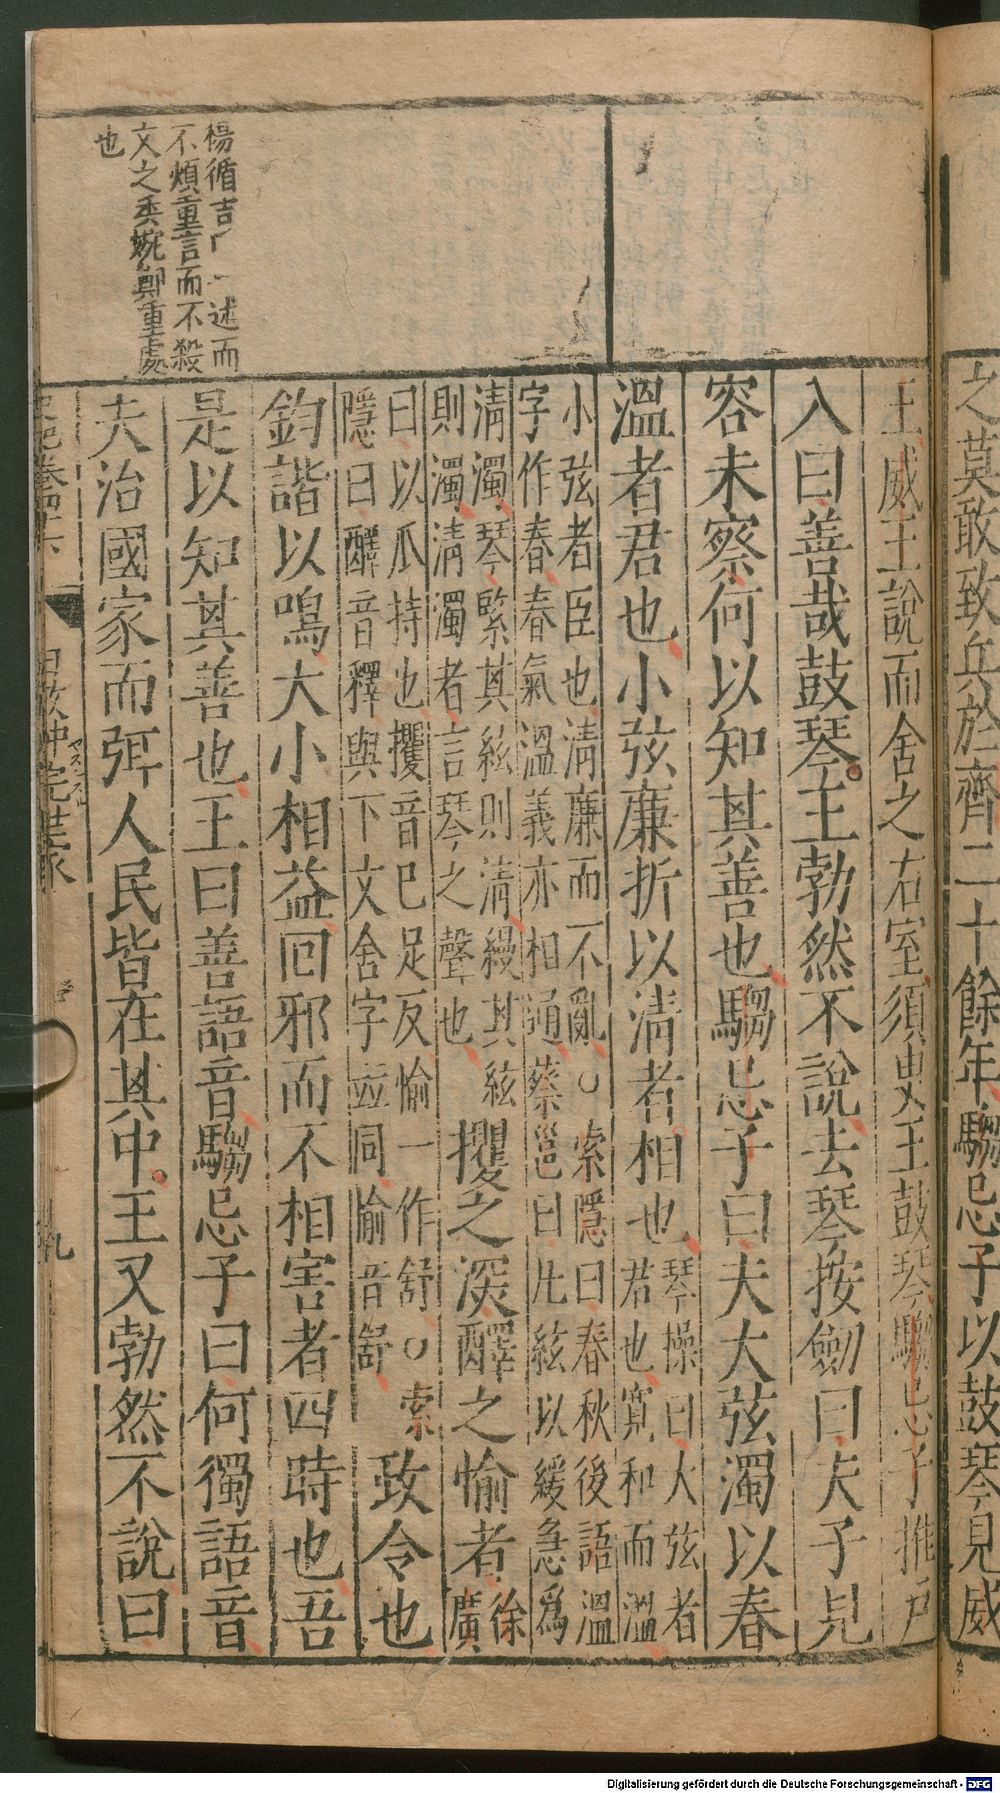 之莫敢致兵於齊二十餘年騶忌子以鼓琴見威
王威王說而舍之右室須臾王鼓琴騶忌子推戶
入曰善哉鼓琴王勃然不說去琴按劒曰夫子見
容未察何以知其善也騶忌子曰夫大弦濁以春
溫者君也小弦廉折以清者相也
琴操曰大弦者
君也寛和而溫
小弦者臣也清廉而不亂○索隱曰春秋後語溫
字作春春氣溫義亦相通蔡邕曰凡絃以緩急爲
清濁琴緊其絃則清縵其絃
則濁清濁者言琴之聲也
攫之深醳之愉者
徐
廣
曰以爪持也攫音己足反愉一作舒○索
隱曰醳音釋與下文舍字並同愉音舒
政令也
鈞諧以鳴大小相益回邪而不相害者四時也吾
是以知其善也王曰善語音騶忌子曰何獨語音
夫治國家而弭人民皆在其中王又勃然不說曰
楊循吉
述而
不煩重言而不殺
文之委婉鄭重處
也
九
Digitalisierung gefördert durch die Deutsche Forschungsgemeinschaft - DFG